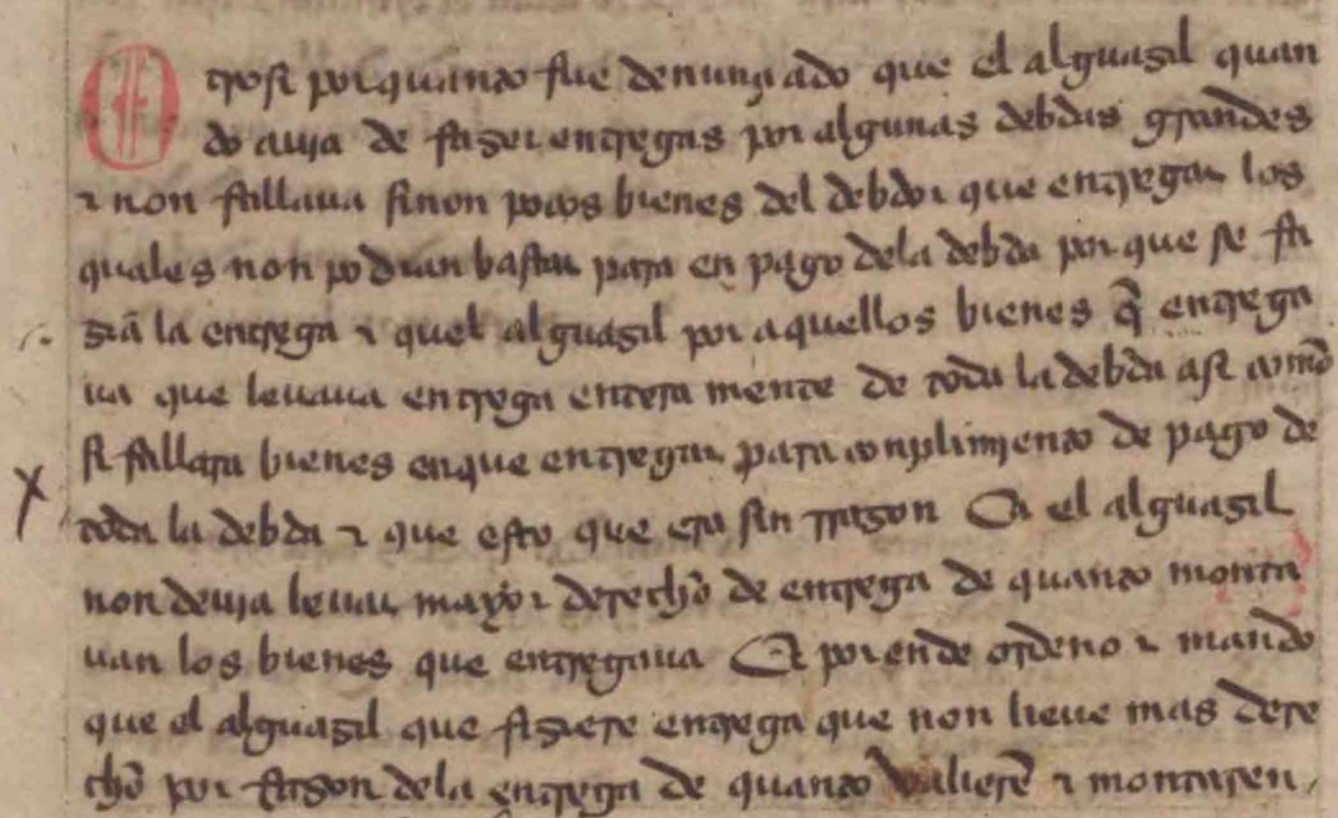 Otrosi por quanto fue denunçiado que el alguasil quan
do auja de faser entregas por algunas debdas grandes
⁊ non fallaua sinon pocos bienes del debdor que entregar los
quales non podrian bastar para en pago dela debda por que se fa
sia la entrega ⁊ quel alguasil por aquellos bienes q̃ entrega
ua que leuaua entrega entera mente de toda la debda asi com̃o
si fallara bienes en que entregar para conplimjento de pago de
toda la debda ⁊ que esto que era sin rrason Ca el alguasil
non deuja leuar mayor derecho de entrega de quanto monta
uan los bienes que entregaua E por ende ordeno ⁊ mando
que el alguasil que fisiere entrega que non lieue mas dere
cho por rrason dela entrega de quanto valierẽ ⁊ montaren